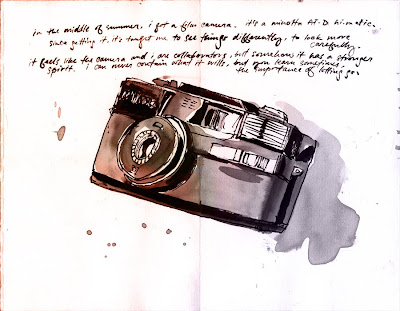 in the middle of summer, i got a film camera. it's a minolta hi-D himatic.
since getting it, it's taught me to see things differently, to look more
carefully.
it feels like the camera and i are collaborators, but somehow it has a stronger
spirit. i can never contain what it wills, but you learn sometimes
the importance of letting go.